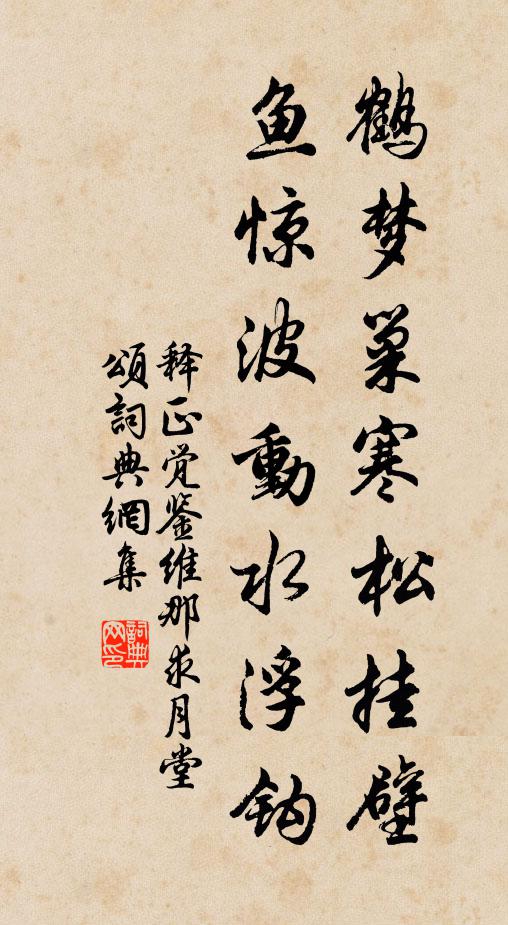 鹤梦巢寒松挂壁
鱼惊波動水浮钩
释正觉鉴维那求月堂
頌詞典網集
詞典網印